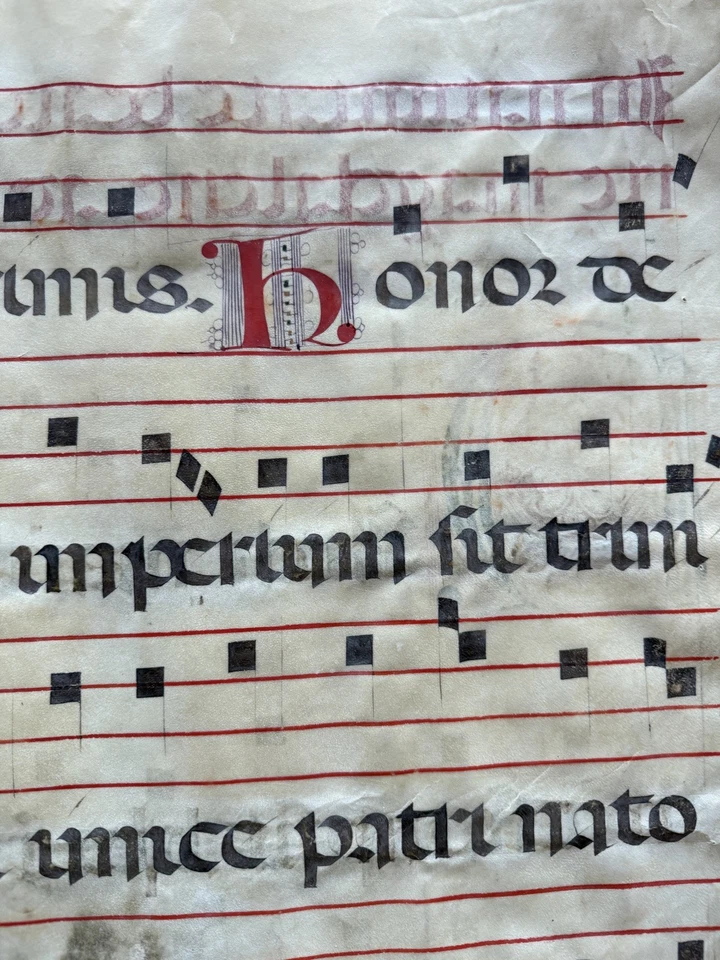 timis. Honor de
imperium sit trini
unice patri nato